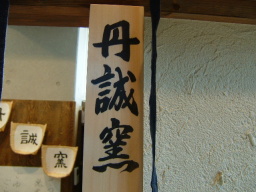 丹誠窯
丹
誠
窯